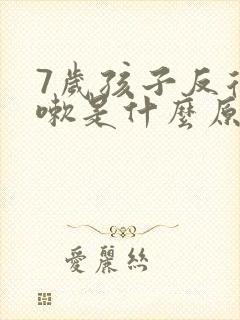 7歲孩子反
嗽是什麼原
愛麗絲